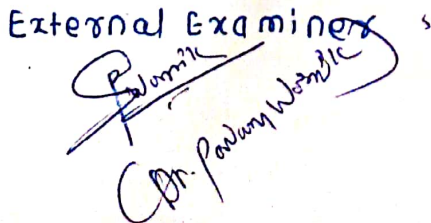 External Examiner s
(Dr. Pavan Warnik